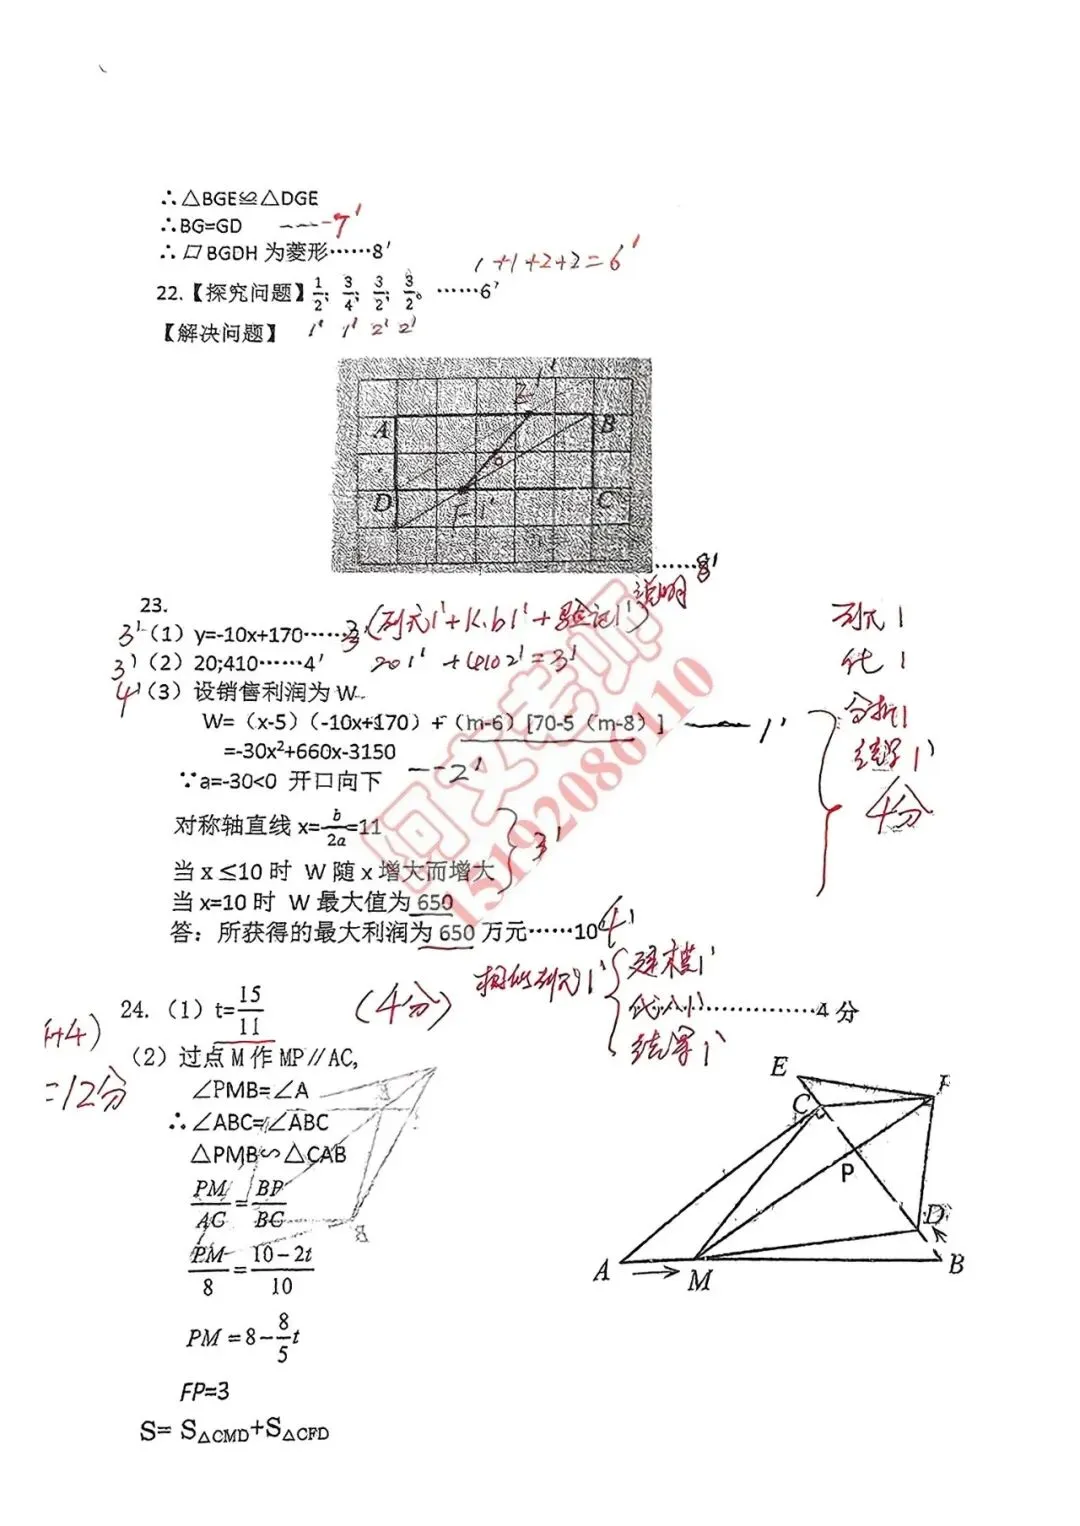 ∴△BGE≌△DGE
∴BG=GD -----7'
∴▱BGDH 为菱形……8'
1+1+2+2=6'
22.【探究问题】1/2; 3/4; 3/2; 3/2。……6'
1' 1' 2' 2'
【解决问题】
E 1'
A B
D F 1' C
……8'
23.
3' (1) y=-10x+170……3' (列式1'+k.b1'+验证1') 说明
3' (2) 20;410……4' 20 1' +410 2'=3'
4' (3) 设销售利润为 W
W=(x-5)(-10x+170)+(m-6)[70-5(m-8)] —— 1'
=-30x²+660x-3150
∵a=-30<0 开口向下 ---2'
对称轴直线 x=-b/2a=11
当 x≤10 时 W 随 x 增大而增大
3'
当 x=10 时 W 最大值为 650
答：所获得的最大利润为 650 万元……10' 4'
列式 1
化 1
分析1
结果1'
4分
阿文老师
15192086110
24.(1) t=15/11 (4分) 相似列式1' ……………4 分
建模1'
代入1'
结果1'
=12分
(2) 过点 M 作 MP∥AC,
∠PMB=∠A
∴∠ABC=∠ABC
△PMB∽△CAB
PM/AC=BP/BC
PM/8=(10-2t)/10
PM=8-8/5t
FP=3
S= S△CMD+S△CFD
E F
C
P
D
A M B